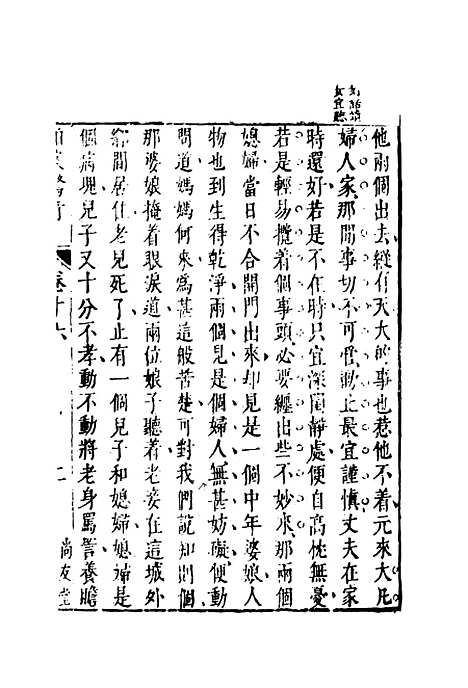 如話請
女宜聽
他兩個出去縱有天大的事也惹他不着元來大凡
婦人家那閒事切不可管動止最宜謹慎丈夫在家
時還好若是不在時只宜深閨靜處便自高枕無憂
若是輕易攬着個事頭必要纏出些不妙來那兩個
媳婦當日不合開門出來却見是一個中年婆娘人
物也到生得乾淨兩個見是個婦人無甚妨礙便動
問道媽媽何來爲甚這般苦楚可對我們說知則個
那婆娘掩着眼淚道兩位娘子聽着老妾在這城外
鄉間居住老兒死了止有一個兒子和媳婦媳婦是
個病塊兒子又十分不孝動不動將老身罵詈養贍
拍案驚奇
卷十六
二
尚友堂